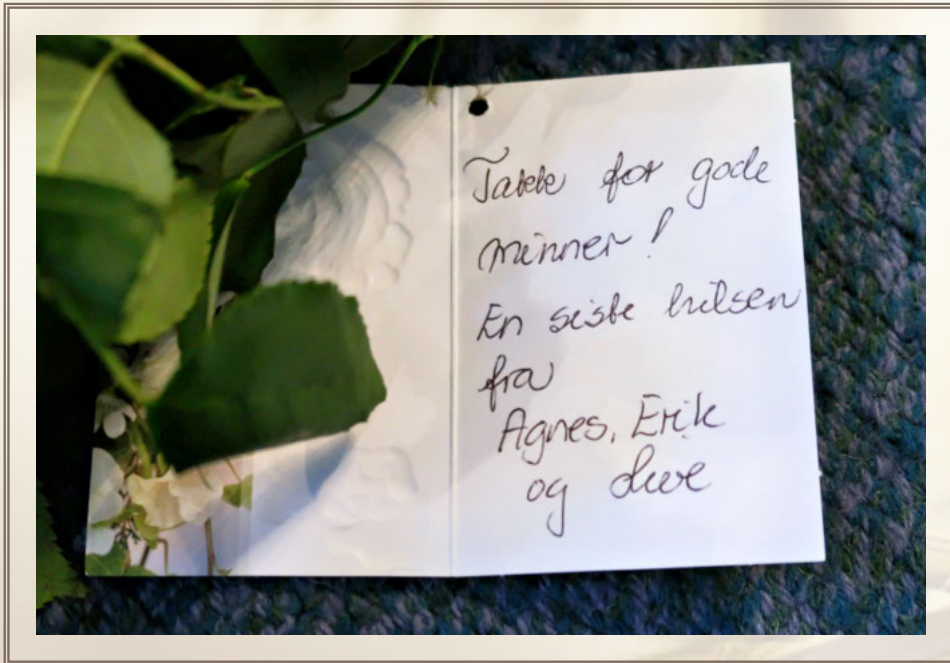 Takk for gode
minner!
En siste hilsen
fra
Agnes, Erik
og